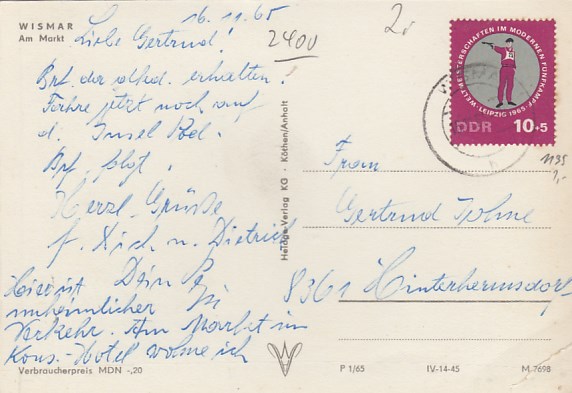 WISMAR
Am Markt
16.11.65
Liebe Gertrud!
2400
2.
Brf. der dkd. erhalten!
Fahre jetzt noch auf
d. Insel Poel.
Brf. folgt.
Herzl. Grüße
f. Dich u. Dietrich
Dein
Hier ist
unheimlicher
Verkehr. Am Markt im
Kons.-Hotel wohne ich
Verbraucherpreis MDN -,20
Heldge-Verlag KG · Köthen/Anhalt
WELTMEISTERSCHAFTEN IM MODERNEN FÜNFKAMPF · LEIPZIG 1965
DDR 10+5
1135
1,-
Frau
Gertrud
8361 Hinterhermsdorf
P 1/65 IV-14-45 M 7698